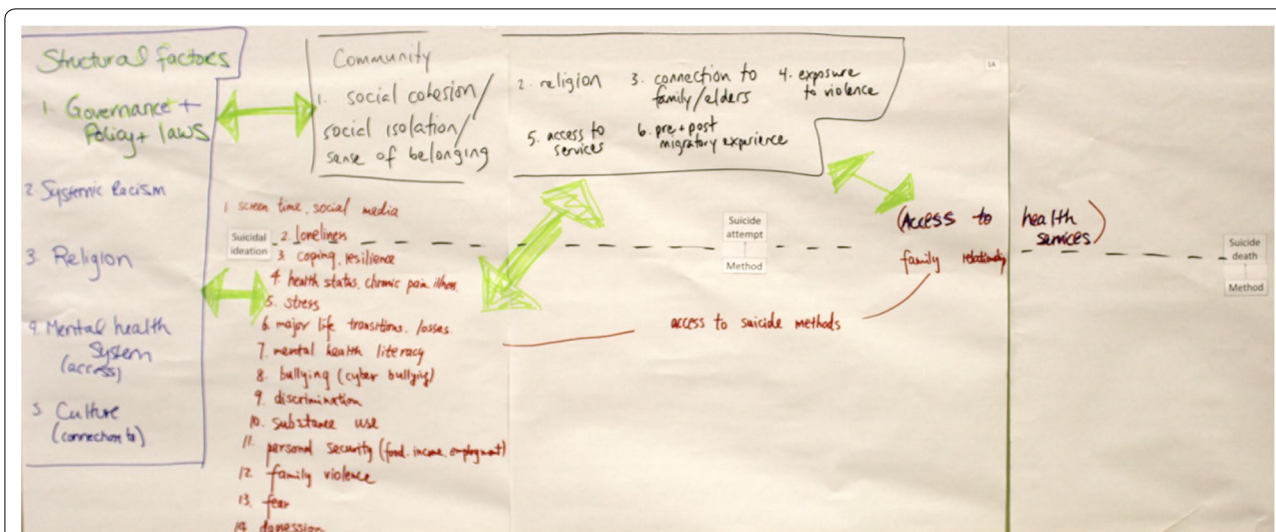 Structural factors
1. Governance +
Policy + laws
2. Systemic Racism
3. Religion
4. Mental health
System
(access)
5. Culture
(connection to)
Community
1. social cohesion/
social isolation/
sense of belonging
2. religion
3. connection to
family/elders
4. exposure
to violence
5. access to
services
6. pre + post
migratory experience
1A
1. screen time, social media
Suicidal
ideation
2. loneliness
3. coping, resilience
4. health status, chronic pain illness
5. stress
6. major life transitions, losses
7. mental health literacy
8. bullying (cyber bullying)
9. discrimination
10. substance use
11. personal security (food, income, employment)
12. family violence
13. fear
14. depression
Suicide
attempt
Method
access to suicide methods
(Access to health
services)
family relationship
Suicide
death
Method